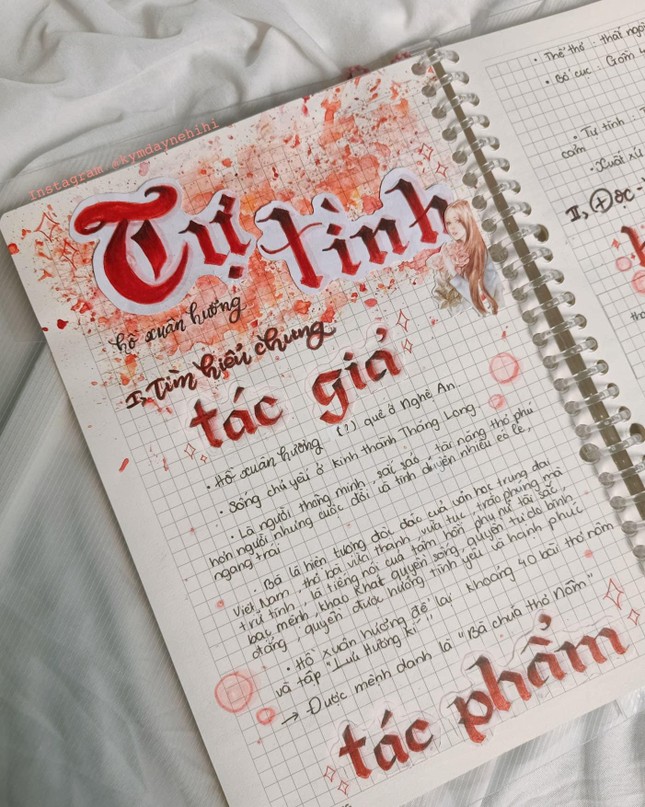 Instagram @kymdaynehihi
Tự tình
hồ xuân hương
I, Tìm hiểu chung
tác giả
• Hồ xuân hương (?) quê ở Nghệ An.
• Sống chủ yếu ở kinh thành Thăng Long.
• Là người thông minh, sắc sảo, tài năng thơ phú
hơn người nhưng cuộc đời và tình duyên nhiều éo le,
ngang trái
• Bà là hiện tượng độc đáo của văn học trung đại
Việt Nam, thơ bà vừa thanh, vừa tục, trào phúng mà
trữ tình, là tiếng nói của tâm hồn phụ nữ tài sắc,
bạc mệnh, khao khát quyền sống, quyền tự do bình
đẳng, quyền được hưởng tình yêu và hạnh phúc
• Hồ xuân hương để lại khoảng 40 bài thơ nôm
và tập "Lưu Hương kí"
→ Được mệnh danh là "Bà chúa thơ Nôm"
tác phẩm
• Thể thơ : thất ngô
• Bố cục : Gồm 4
• Tự tình :
cảm
• Xuất xứ
II, Đọc -